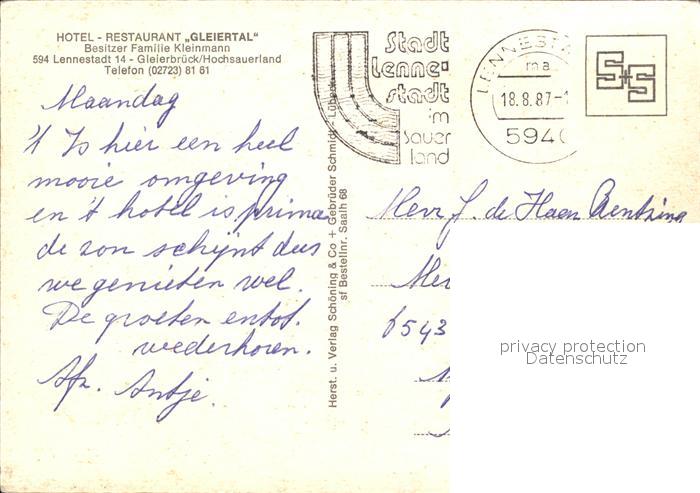 HOTEL - RESTAURANT „GLEIERTAL“
Besitzer Familie Kleinmann
594 Lennestadt 14 - Gleierbrück/Hochsauerland
Telefon (02723) 81 61
Maandag
't Is hier een heel
mooie omgeving
en 't hotel is prima
de zon schijnt dus
we genieten wel.
De groeten en tot.
wederhoren.
Afz. Antje.
Herst. u. Verlag Schöning & Co + Gebrüder Schmidt, Lübeck
sf Bestellnr. Saalh 68
Stadt
Lenne-
stadt
im
Sauer
land
LENNESTA
ma
18.8.87-1
594
S+S
Mevr J. de Haan
Me
6543
privacy protection
Datenschutz